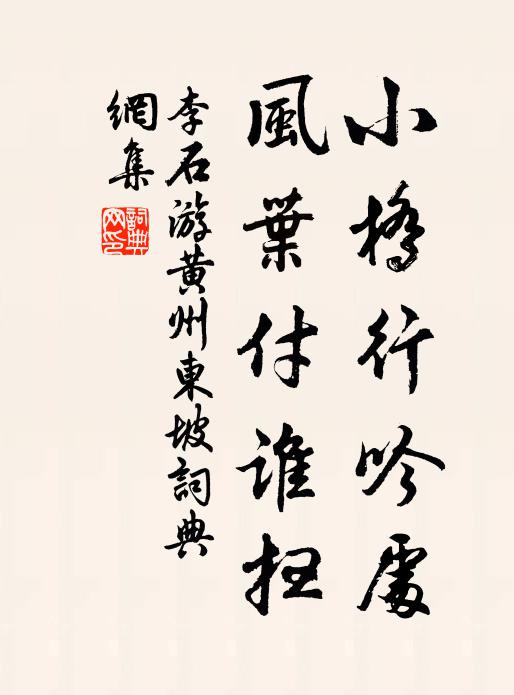 小橋行吟處
風葉付誰掃
李石游黃州東坡詞典
網集
詞典網印